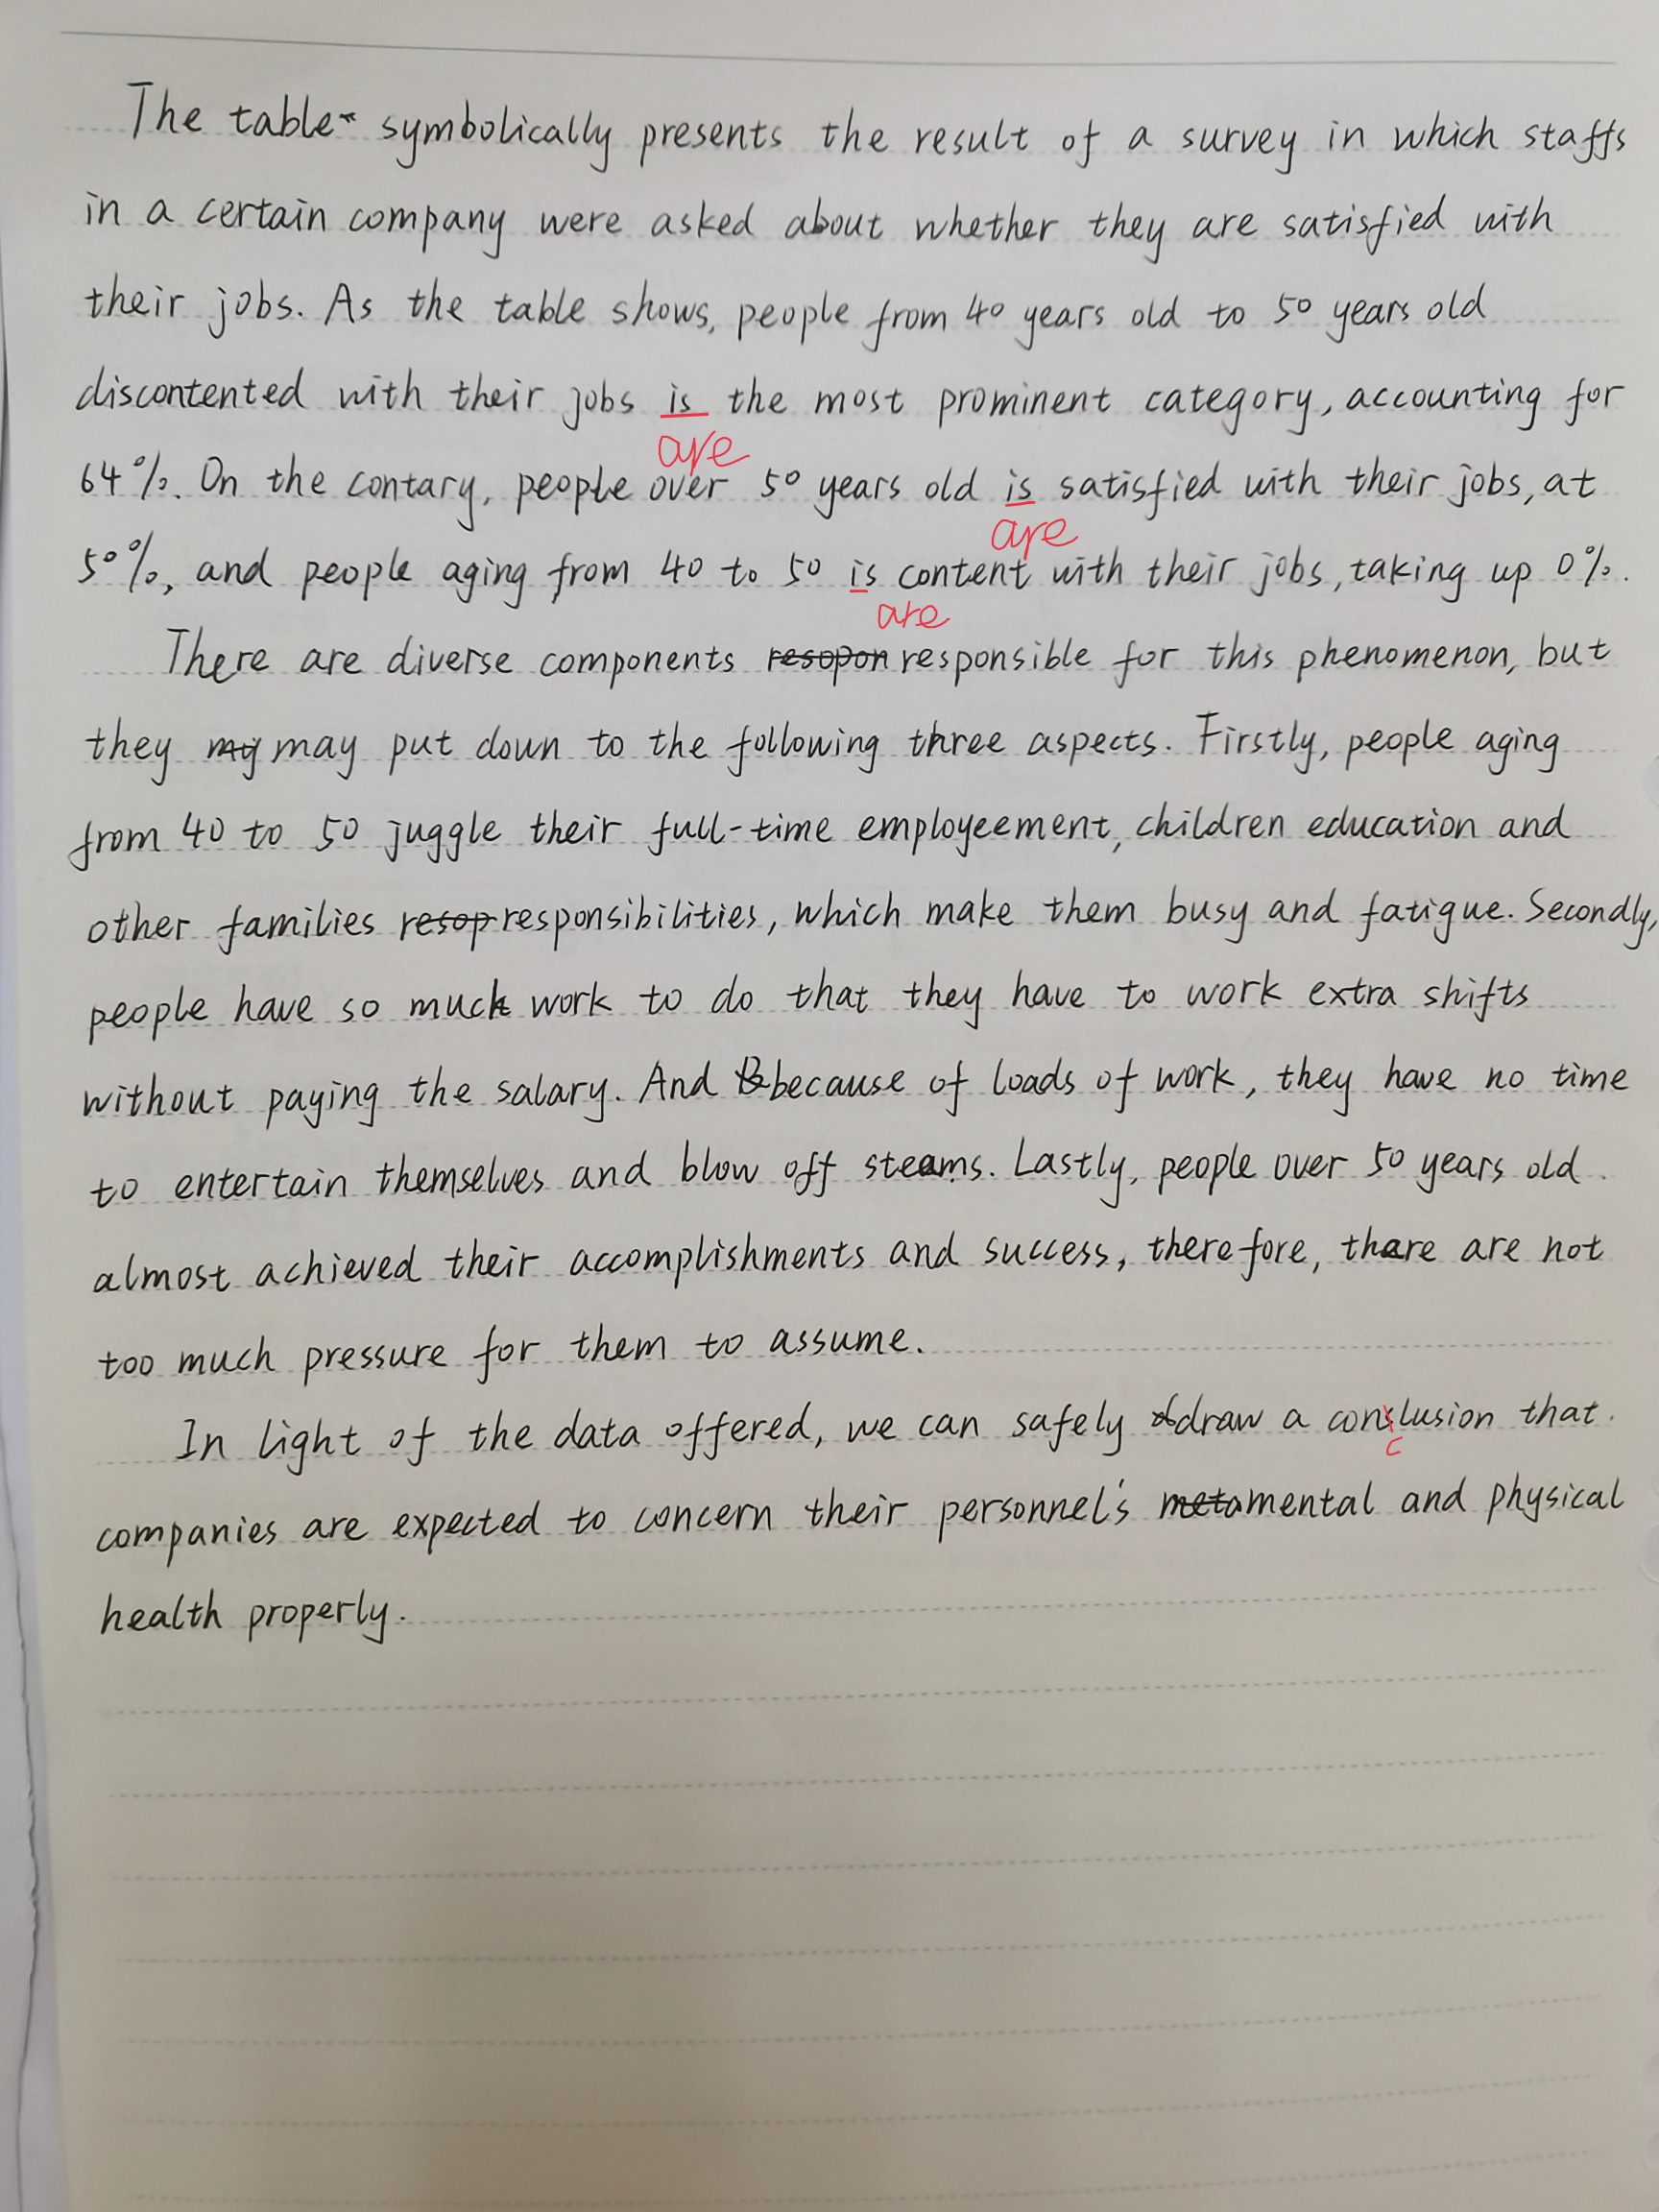 The table symbolically presents the result of a survey in which staffs
in a certain company were asked about whether they are satisfied with
their jobs. As the table shows, people from 40 years old to 50 years old
discontented with their jobs is the most prominent category, accounting for
are
64%. On the contary, people over 50 years old is satisfied with their jobs, at
are
50%, and people aging from 40 to 50 is content with their jobs, taking up 0%.
are
There are diverse components resopon responsible for this phenomenon, but
they my may put down to the following three aspects. Firstly, people aging
from 40 to 50 juggle their full-time employeement, children education and
other families resop responsibilities, which make them busy and fatigue. Secondly,
people have so much work to do that they have to work extra shifts
without paying the salary. And because of loads of work, they have no time
to entertain themselves and blow off steams. Lastly, people over 50 years old
almost achieved their accomplishments and success, therefore, there are not
too much pressure for them to assume.
In light of the data offered, we can safely draw a conslusion that
c
companies are expected to concern their personnel's meta mental and physical
health properly.